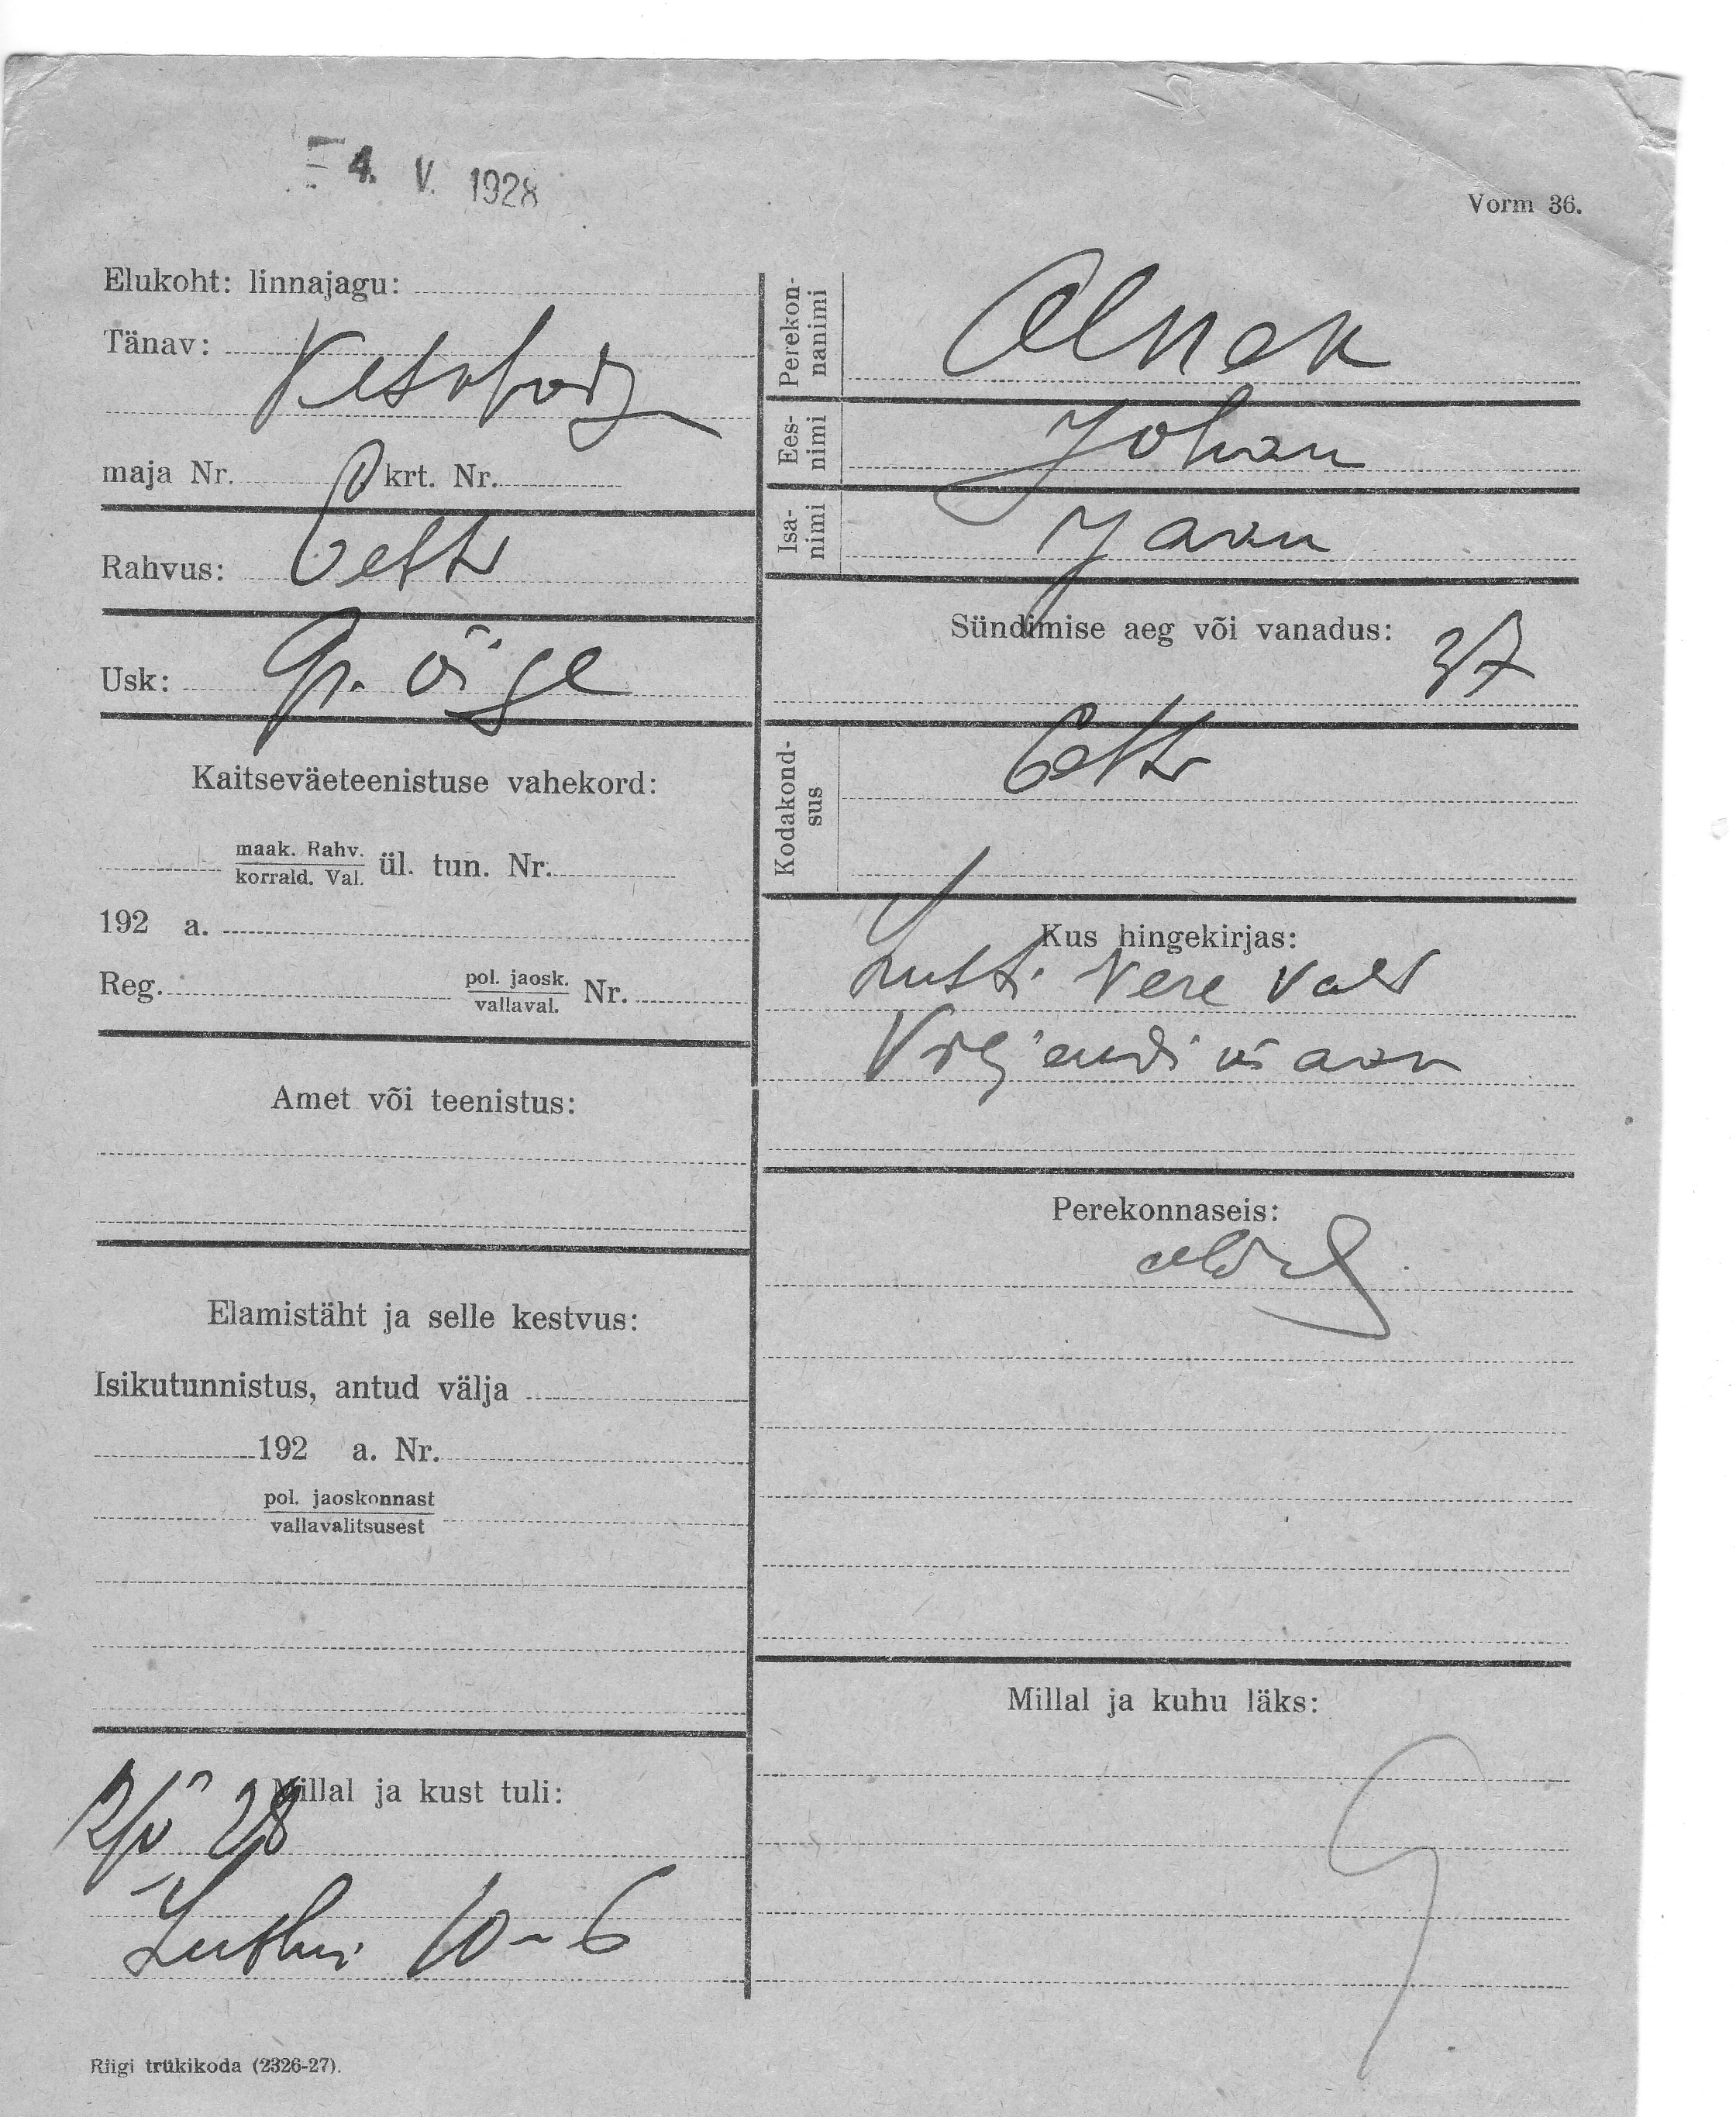 4. V. 1928
Vorm 36.
Elukoht: linnajagu:
Tänav:
maja Nr. krt. Nr.
Rahvus: Eesti
Usk: Ap. õige
Kaitseväeteenistuse vahekord:
maak. Rahv.
korrald. Val. ül. tun. Nr.
192 a.
Reg. pol. jaosk.
vallaval. Nr.
Amet või teenistus:
Elamistäht ja selle kestvus:
Isikutunnistus, antud välja
192 a. Nr.
pol. jaoskonnast
vallavalitsusest
Millal ja kust tuli:
2/V 28
10-6
Riigi trükikoda (2326-27).
Perekon-
nanimi
Ees-
nimi Johan
Isa-
nimi Jaan
Sündimise aeg või vanadus:
37
Kodakond-
sus Eesti
Kus hingekirjas:
Vere vald
Viljandi maak
Perekonnaseis:
Millal ja kuhu läks: